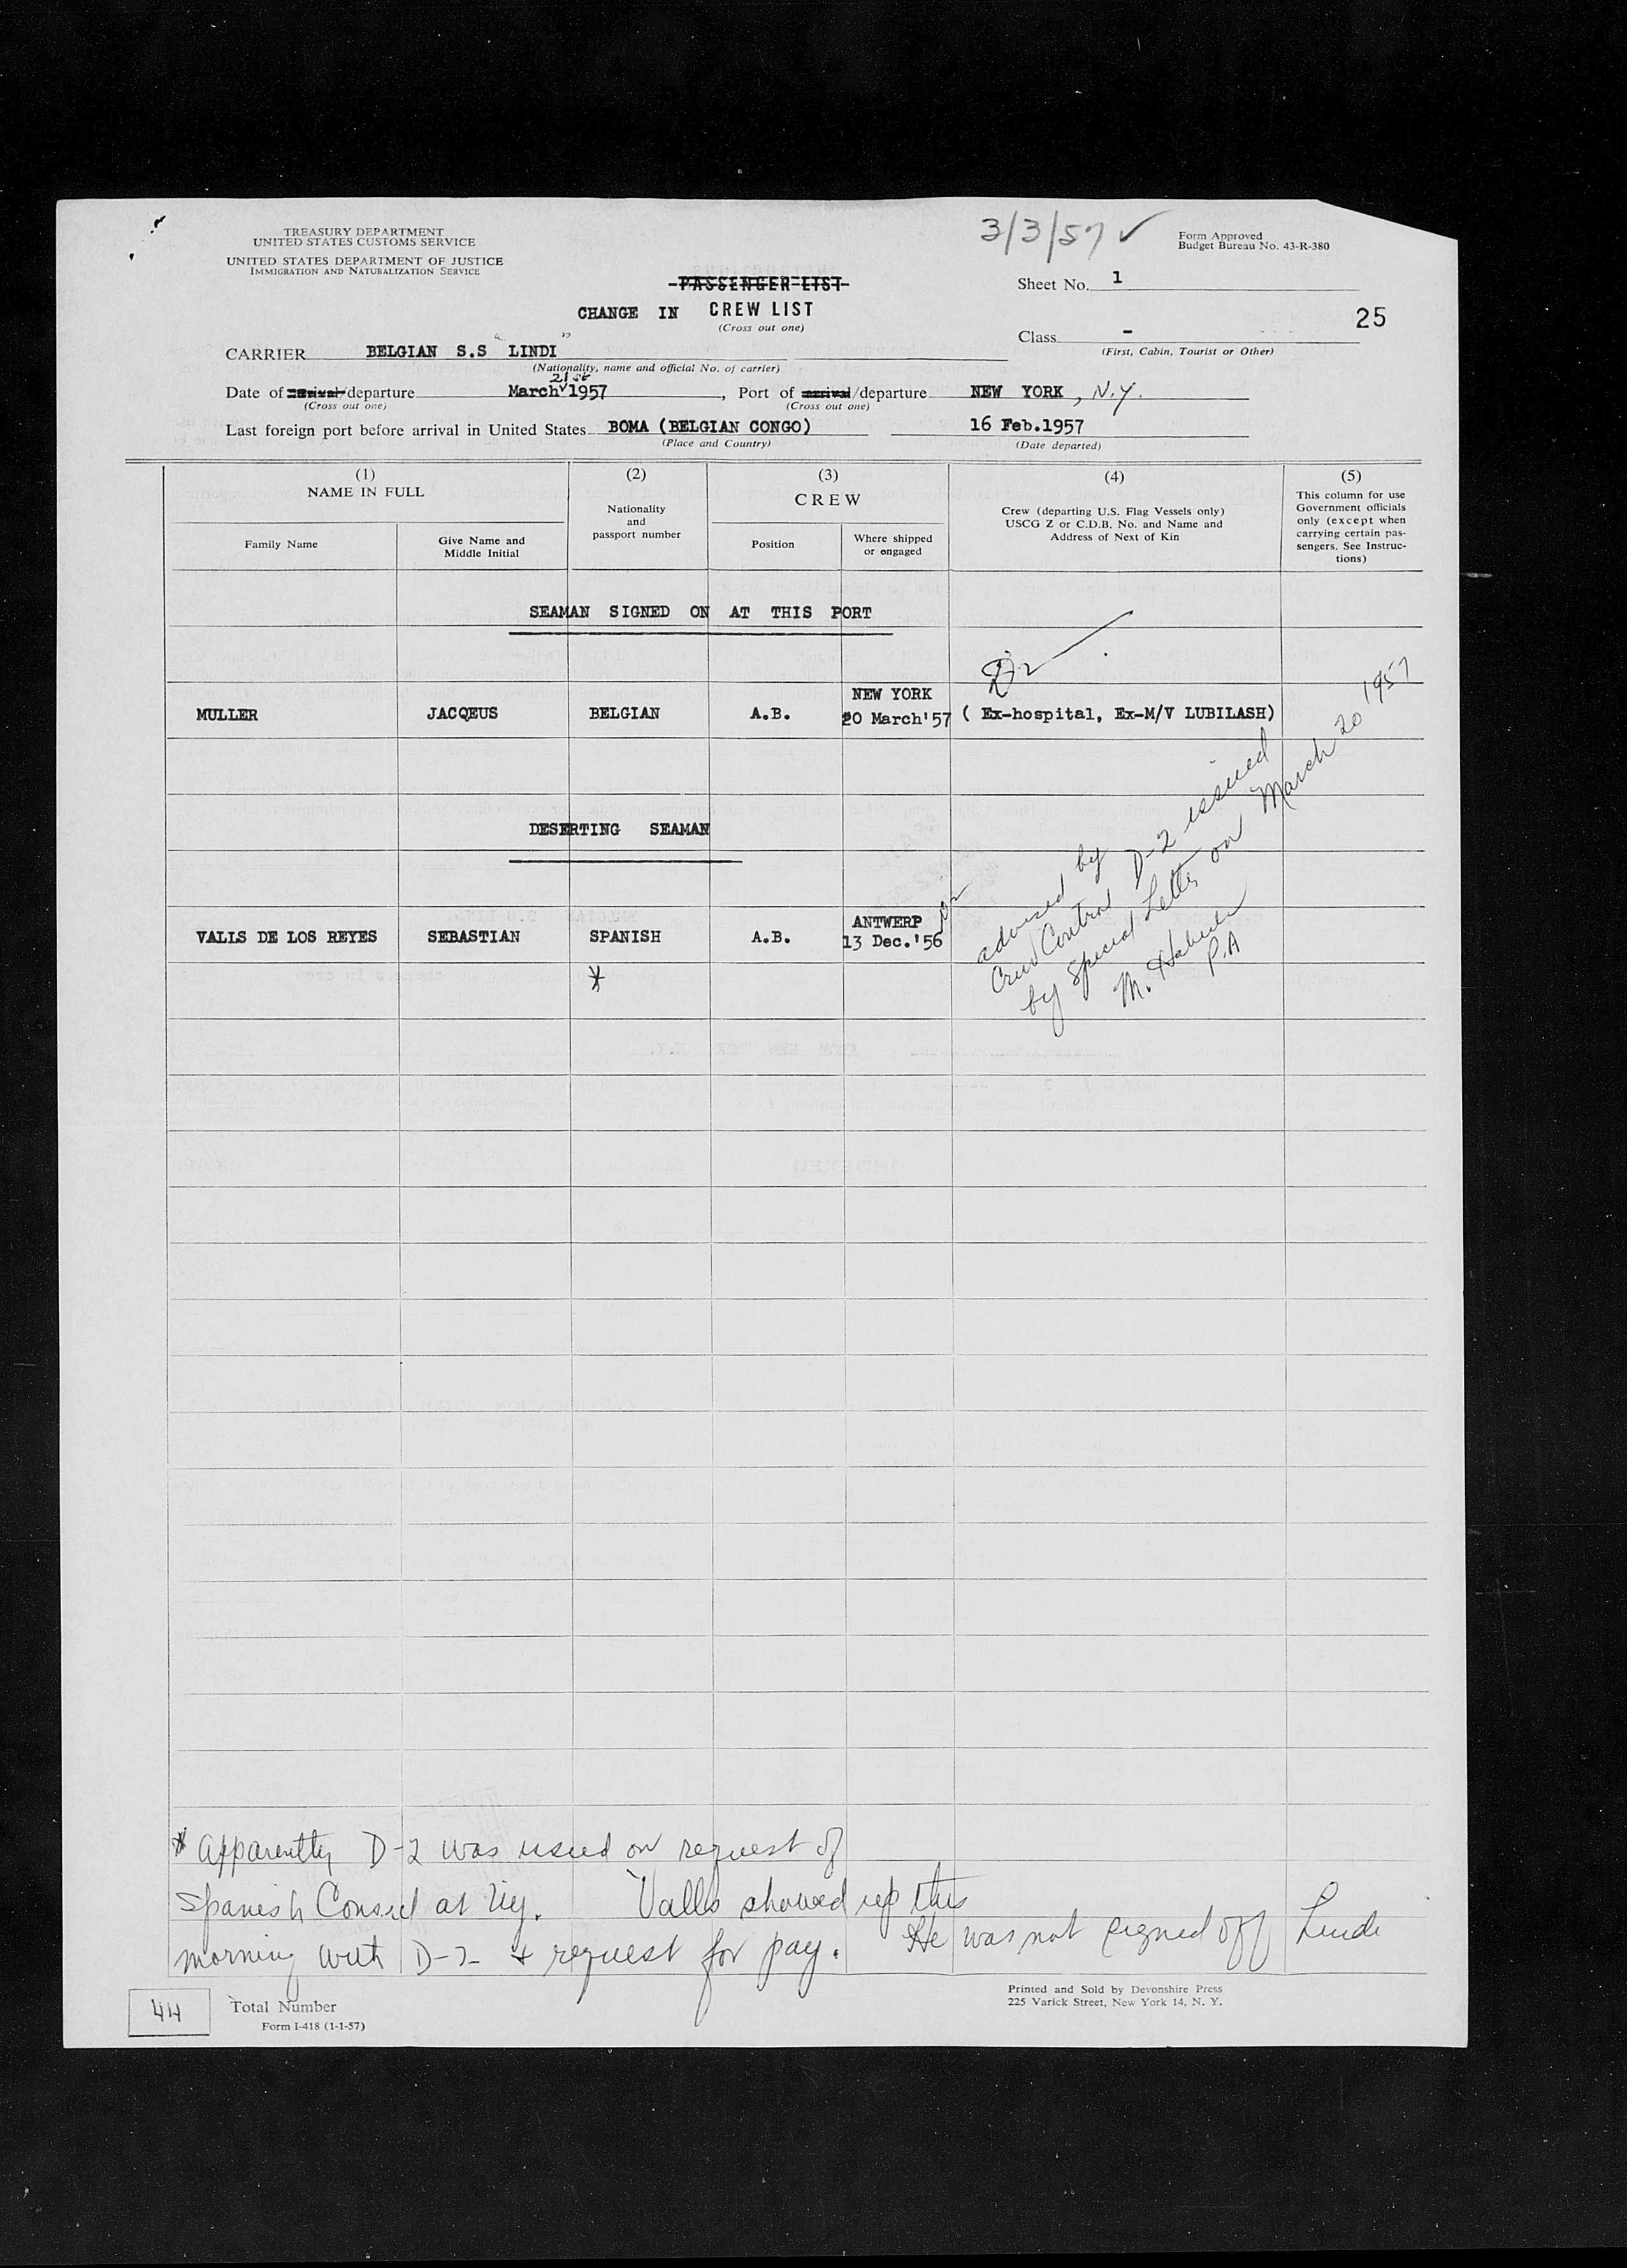 TREASURY DEPARTMENT
UNITED STATES CUSTOMS SERVICE
UNITED STATES DEPARTMENT OF JUSTICE
IMMIGRATION AND NATURALIZATION SERVICE
3/3/57 ✓
Form Approved
Budget Bureau No. 43-R-380
PASSENGER LIST
Sheet No. 1
CHANGE IN CREW LIST
(Cross out one)
25
Class -
(First, Cabin, Tourist or Other)
CARRIER BELGIAN S.S "LINDI"
(Nationality, name and official No. of carrier)
21st
Date of arrival/departure March 1957, Port of arrival/departure NEW YORK, N.Y.
(Cross out one) (Cross out one)
Last foreign port before arrival in United States BOMA (BELGIAN CONGO) 16 Feb.1957
(Place and Country) (Date departed)
(1) NAME IN FULL
Family Name
Give Name and Middle Initial
(2)
Nationality
and
passport number
(3)
CREW
Position
Where shipped
or engaged
(4)
Crew (departing U.S. Flag Vessels only)
USCG Z or C.D.B. No. and Name and
Address of Next of Kin
(5)
This column for use
Government officials
only (except when
carrying certain pas-
sengers. See Instruc-
tions)
SEAMAN SIGNED ON AT THIS PORT
NEW YORK
MULLER JACQEUS BELGIAN A.B. 20 March'57 ( Ex-hospital, Ex-M/V LUBILASH)
DESERTING SEAMAN
ANTWERP
VALLS DE LOS REYES SEBASTIAN SPANISH A.B. 13 Dec.'56
*
advised by
Crew Control D-2 issued
by Special Letter on March 20 1957
M.
P.A
* Apparently D-2 was used on request of
Spanish Consul at NY. Valls showed up this
morning with D-2 & request for pay. He was not signed off Lindi
44
Total Number
Form I-418 (1-1-57)
Printed and Sold by Devonshire Press
225 Varick Street, New York 14, N. Y.